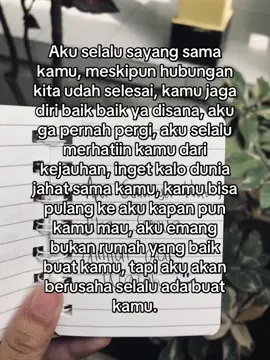 Aku selalu sayang sama
kamu, meskipun hubungan
kita udah selesai, kamu jaga
diri baik baik ya disana, aku
ga pernah pergi, aku selalu
merhatiin kamu dari
kejauhan, inget kalo dunia
jahat sama kamu, kamu bisa
pulang ke aku kapan pun
kamu mau, aku emang
bukan rumah yang baik
buat kamu, tapi aku akan
berusaha selalu ada buat
kamu.